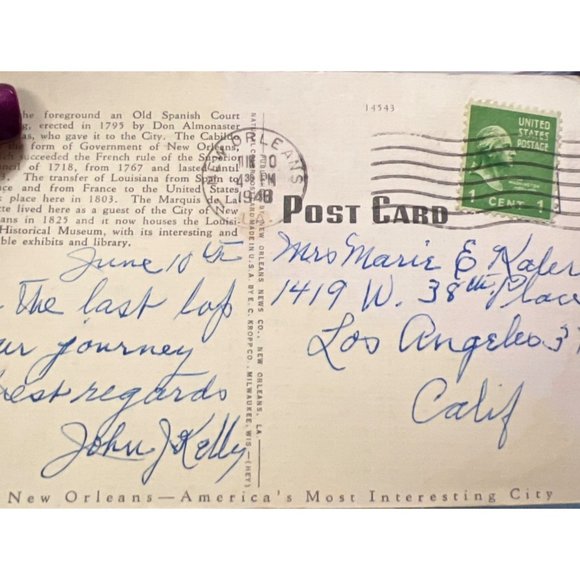 he foreground an Old Spanish Court
g, erected in 1795 by Don Almonaster
as, who gave it to the City. The Cabildo
the form of Government of New Orleans,
ch succeeded the French rule of the Superior
ouncil of 1718, from 1767 and lasted until
03. The transfer of Louisiana from Spain to
nce and from France to the United States
k place here in 1803. The Marquis de La
tte lived here as a guest of the City of New
ns in 1825 and it now houses the Louisi-
Historical Museum, with its interesting and
ble exhibits and library.
June 10th
The last lap
ur journey
Best regards
John J Kelly
PUB. BY NEW ORLEANS NEWS CO., NEW ORLEANS, LA.
MADE IN U.S.A. BY E. C. KROPP CO., MILWAUKEE, WIS.—(HEY)
14543
NEW ORLEANS
JUN 10
4 30 PM
1948
UNITED
STATES
POSTAGE
WASHINGTON
1 CENT 1
POST CARD
Mrs Marie E Kaler
1419 W. 38th Place
Los Angeles 3
Calif
New Orleans—America's Most Interesting City